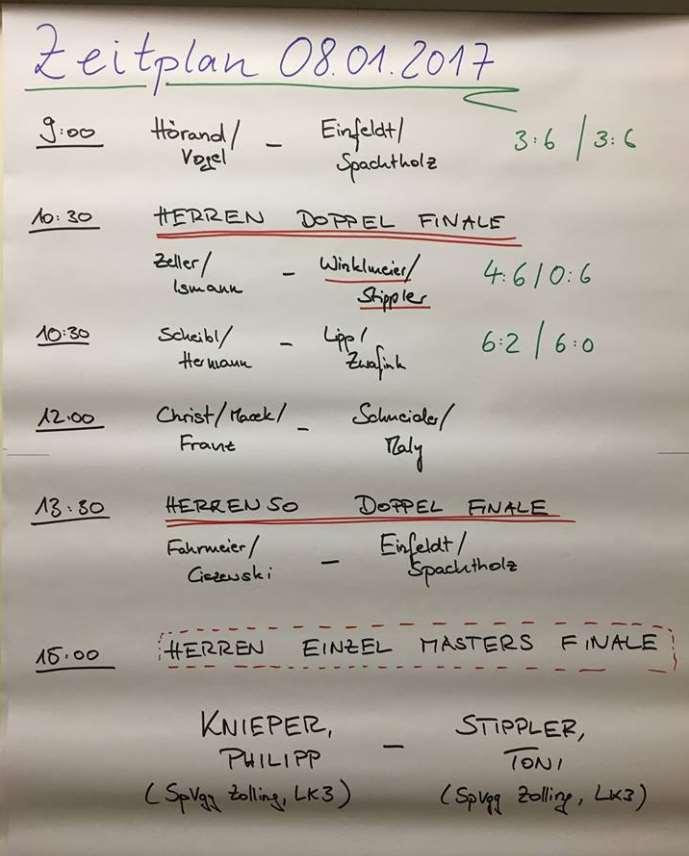 Zeitplan 08.01.2017
9:00 Hörand/ - Einfeldt/ 3:6 / 3:6
Vogel Spachtholz
10:30 HERREN DOPPEL FINALE
Zeller/ - Winklmeier/ 4:6/0:6
Ismann Stippler
10:30 Scheibl/ - Lipp/ 6:2 / 6:0
Hermann Zwafink
12.00 Christ/Macek/ - Schneider/
Franz Maly
13:30 HERREN 50 DOPPEL FINALE
Fahrmeier/ - Einfeldt/
Ciszewski Spachtholz
15.00 HERREN EINZEL MASTERS FINALE
KNIEPER, - STIPPLER,
PHILIPP TONI
(SpVgg Zolling, LK3) (SpVgg Zolling, LK3)